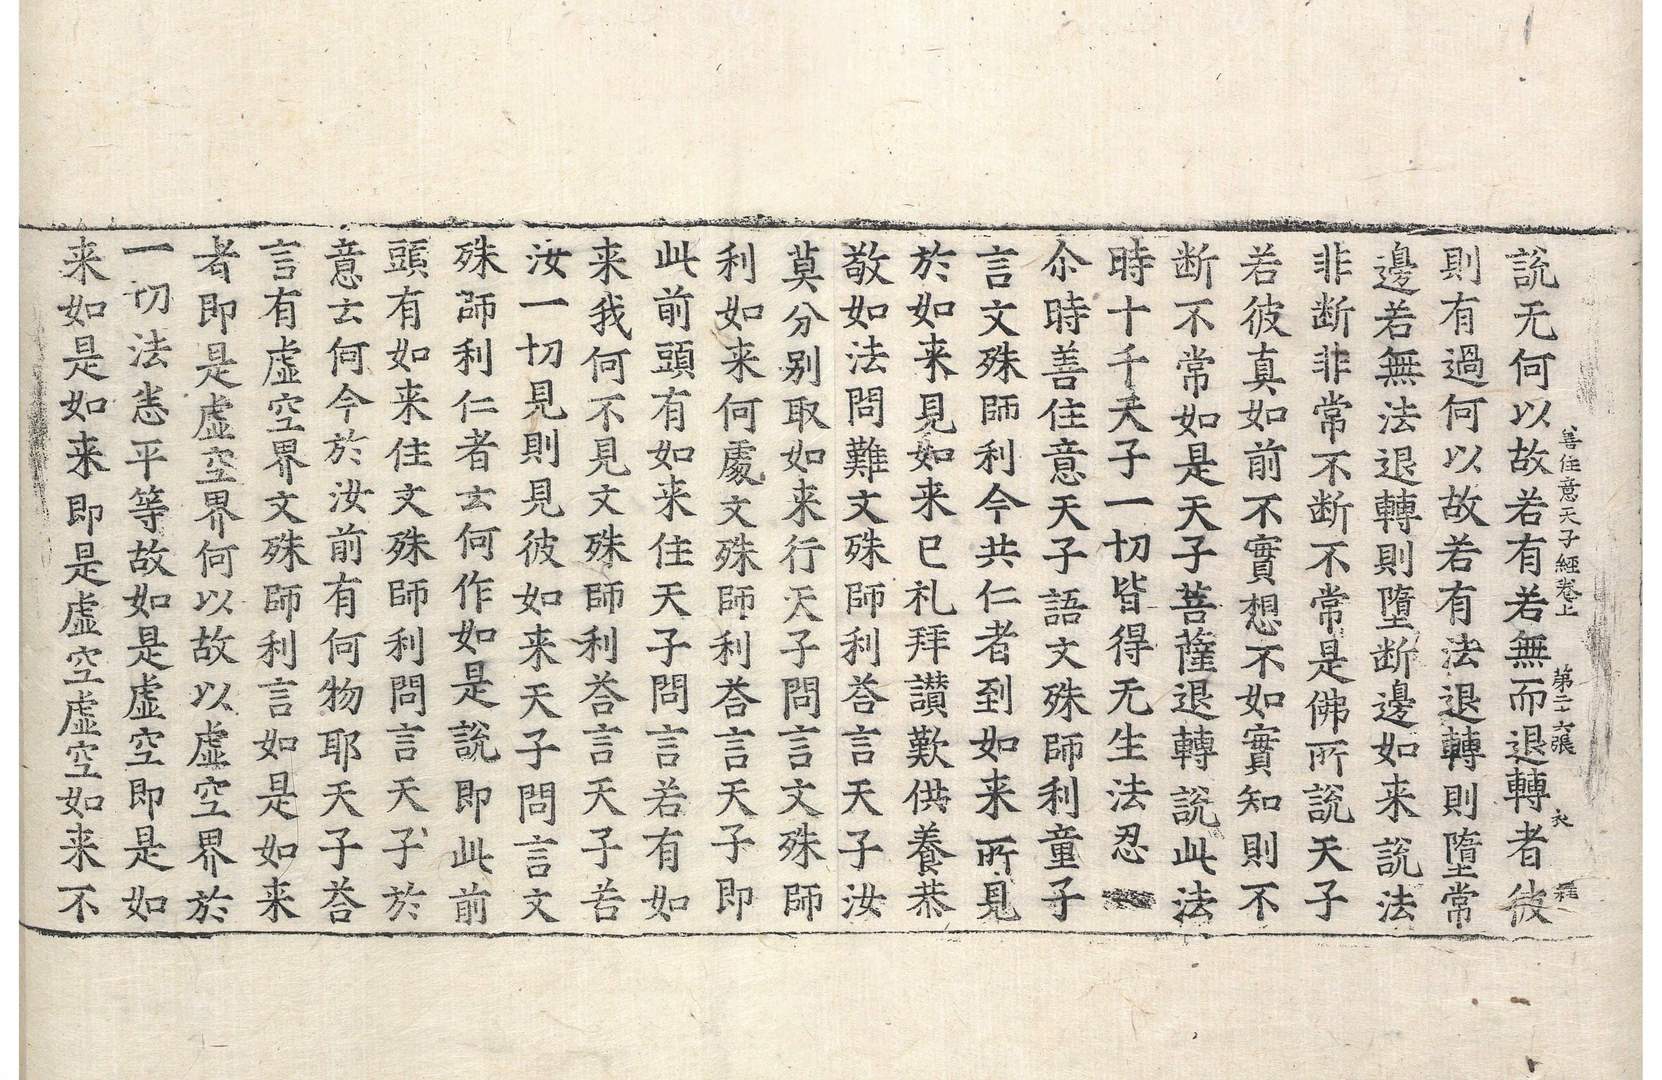 善住意天子經卷上 第二十六張
說无何以故若有若無而退轉者彼
則有過何以故若有法退轉則墮常
邊若無法退轉則墮断邊如来說法
非断非常不断不常是佛所說天子
若彼真如前不實想不如實知則不
断不常如是天子菩薩退轉說此法
時十千天子一切皆得无生法忍
尒時善住意天子語文殊師利童子
言文殊師利今共仁者到如来所見
於如来見如来已礼拜讃歎供養恭
敬如法問難文殊師利荅言天子汝
莫分别取如来行天子問言文殊師
利如来何處文殊師利荅言天子即
此前頭有如来住天子問言若有如
来我何不見文殊師利荅言天子若
汝一切見則見彼如来天子問言文
殊師利仁者云何作如是說即此前
頭有如来住文殊師利問言天子於
意云何今於汝前有何物耶天子荅
言有虚空界文殊師利言如是如来
者即是虚空界何以故以虚空界於
一切法悉平等故如是虚空即是如
来如是如来即是虚空虚空如来不